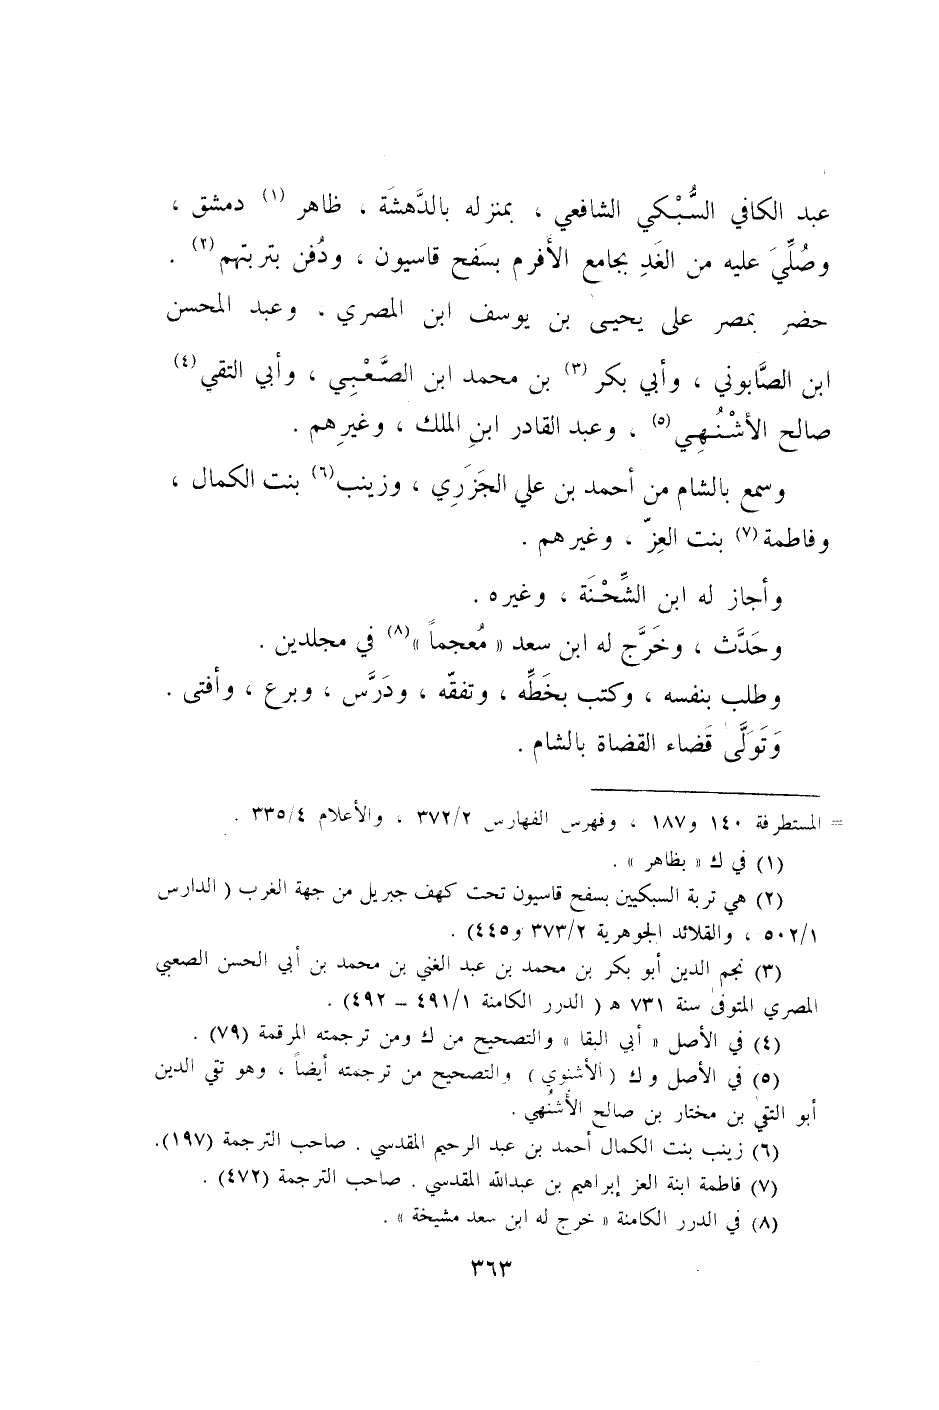 عبد الكافي السُّبْكي الشافعي ، بمنزله بالدَّهشَة ، ظاهر (١) دمشق ،
وصُلِّيَ عليه من الغَدِ بجامع الأفرم بسَفح قاسيون ، ودُفن بتربتهم (٢) .
حضر بمصر على يحيىٰ بن يوسف ابن المصري ، وعبد المحسن
ابن الصَّابوني ، وأبي بكر (٣) بن محمد ابن الصَّعْبِي ، وأبي التقي (٤)
صالح الأشْنُهِي (٥) ، وعبد القادر ابنِ الملك ، وغيرِهم .
وسمع بالشام من أحمد بن علي الجَزَرِي ، وزينب (٦) بنت الكمال ،
وفاطمة (٧) بنت العِزّ ، وغيرهم .
وأجاز له ابن الشِّحْنَة ، وغيره .
وحَدَّث ، وخَرَّج له ابن سعد « مُعجماً » (٨) في مجلدين .
وطلب بنفسه ، وكتب بخَطِّه ، وتفقّه ، ودَرَّس ، وبرع ، وأفتى .
وَتَوَلَّىٰ قَضاء القضاة بالشام .
= المستطرفة ١٤٠ و١٨٧ ، وفهرس الفهارس ٣٧٢/٢ ، والأعلام ٣٣٥/٤ .
(١) في ك « بظاهر » .
(٢) هي تربة السبكيين بسفح قاسيون تحت كهف جبريل من جهة الغرب ( الدارس
٥٠٢/١ ، والقلائد الجوهرية ٣٧٣/٢ و٤٤٥) .
(٣) نجم الدين أبو بكر بن محمد بن عبد الغني بن محمد بن أبي الحسن الصعبي
المصري المتوفىٰ سنة ٧٣١ هـ ( الدرر الكامنة ٤٩١/١ – ٤٩٢) .
(٤) في الأصل « أبي البقا » والتصحيح من ك ومن ترجمته المرقمة (٧٩) .
(٥) في الأصل وك ( الأشنوي ) والتصحيح من ترجمته أيضاً ، وهو تقي الدين
أبو التقىٰ بن مختار بن صالح الأُشنُهي .
(٦) زينب بنت الكمال أحمد بن عبد الرحيم المقدسي . صاحب الترجمة (١٩٧).
(٧) فاطمة ابنة العز إبراهيم بن عبدالله المقدسي . صاحب الترجمة (٤٧٢) .
(٨) في الدرر الكامنة « خرج له ابن سعد مشيخة » .
٣٦٣